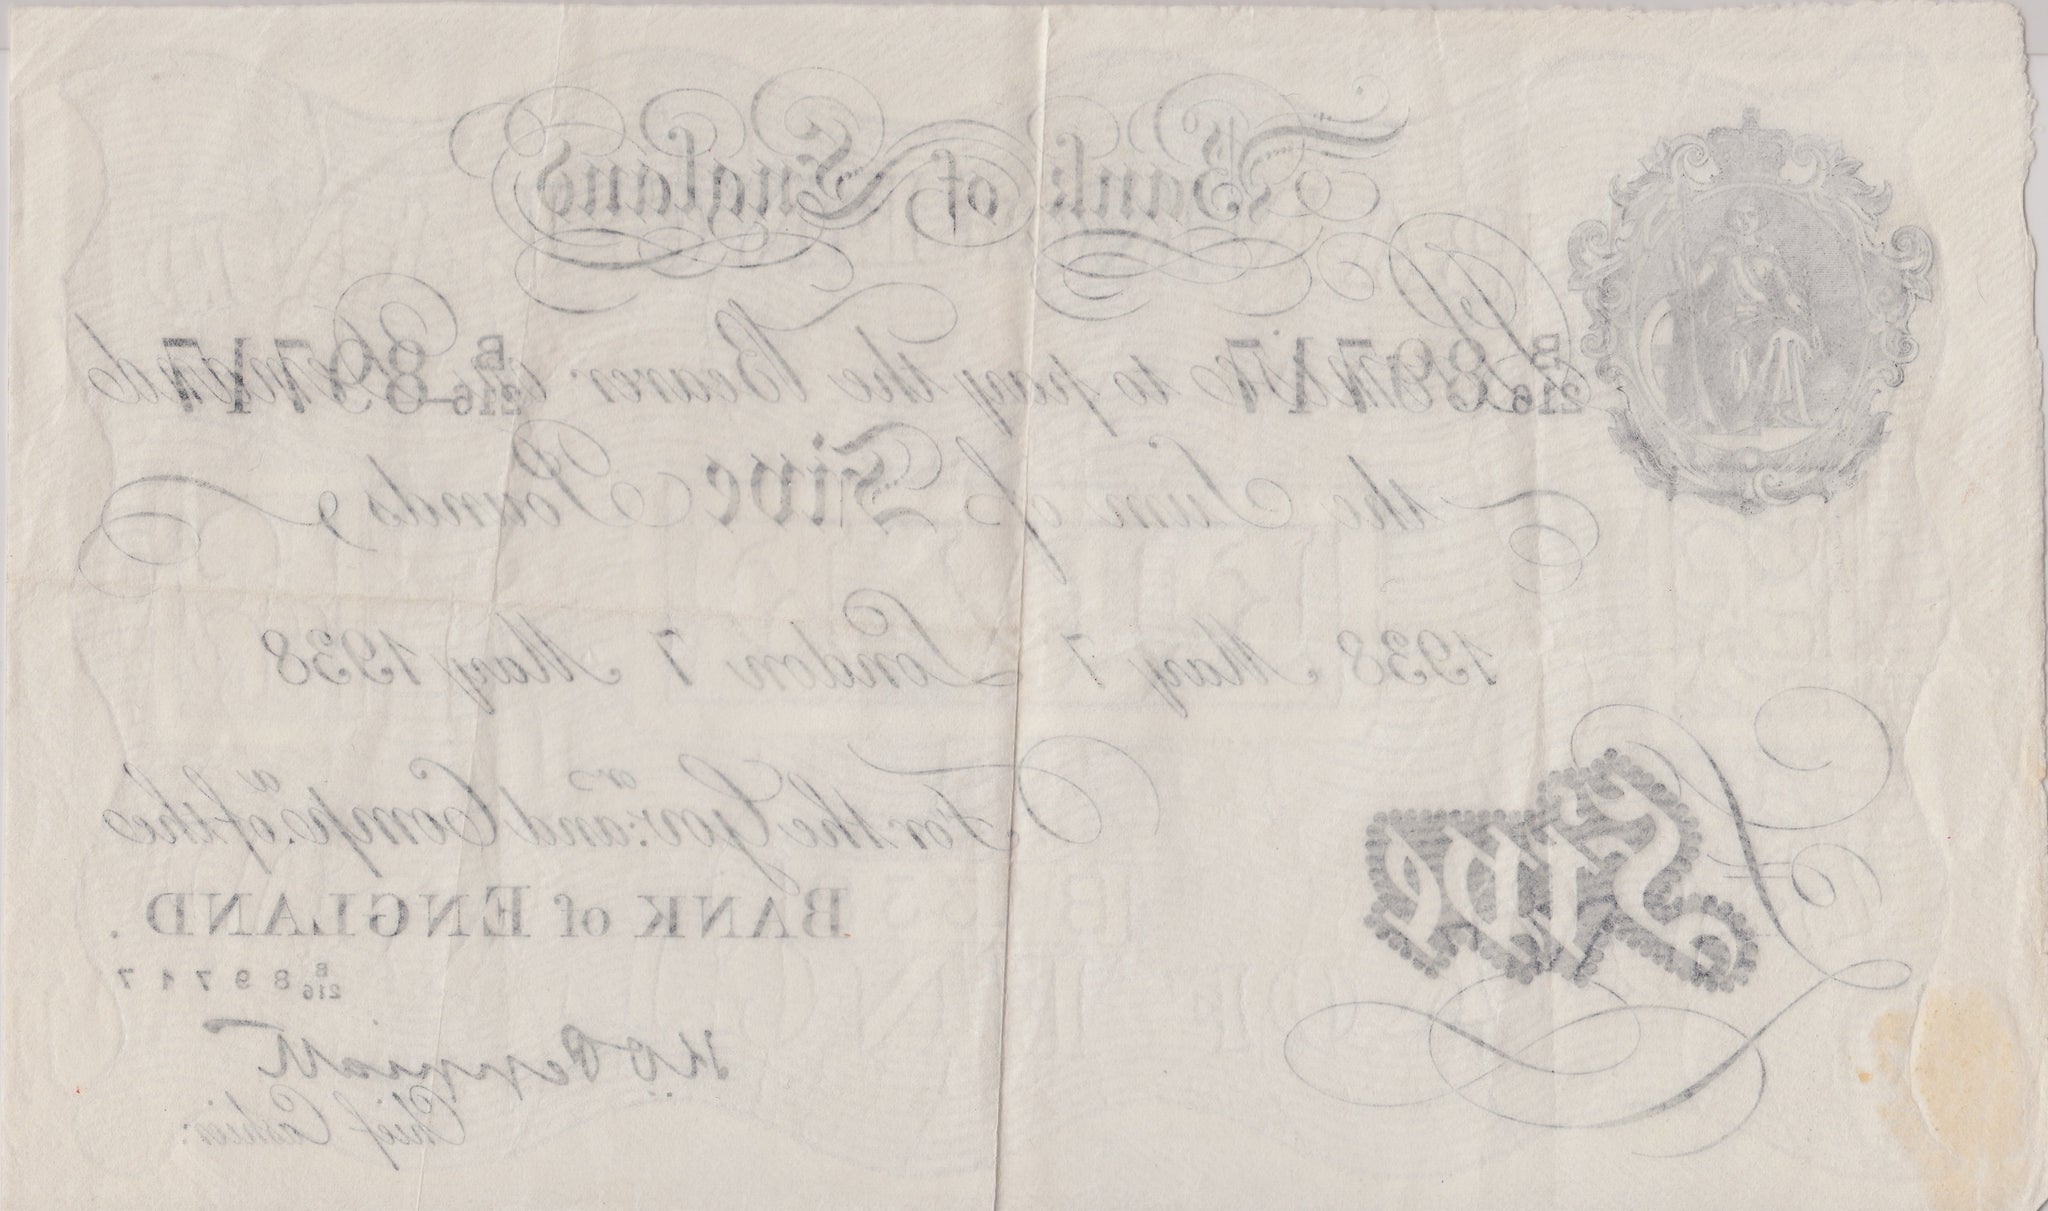 Bank of England
B/216 89717 B/216 89717
I Promise to pay the Bearer on Demand
the Sum of Five Pounds
1938 May 7 London 7 May 1938
For the Gov.ʳ and Comp.ᵃ of the
BANK of ENGLAND.
B/216 89717
K.O. Peppiatt
Chief Cashier.
£ Five